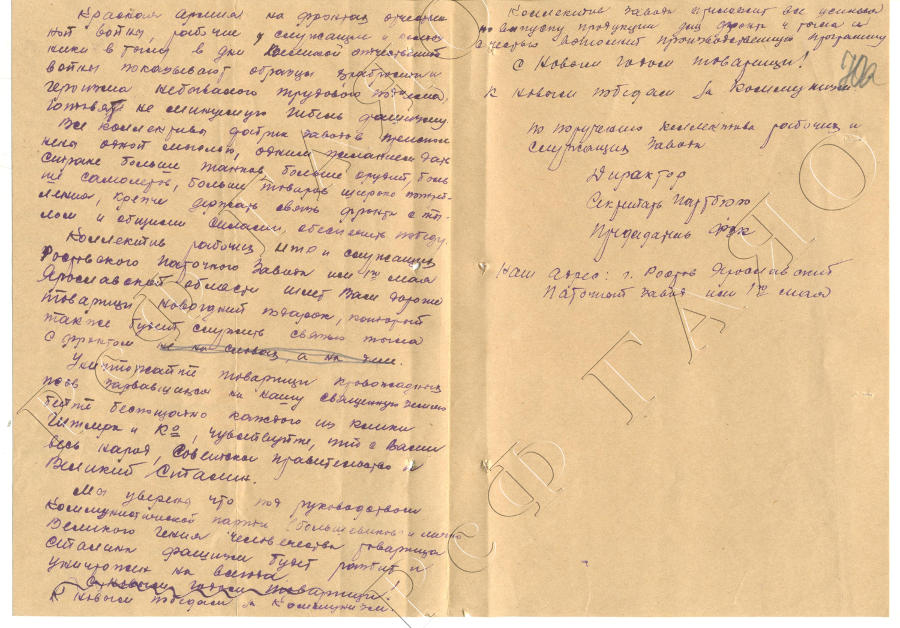 Красная армия на фронтах отечествен
ной войны, рабочие, служащие и
ники в тылу в дни Великой отечественной
войны показывают образцы
героизма небывалого трудового подъема,
готовят не минуемую гибель фашизму.
Все коллективы фабрик заводов преиспол
нены одной мыслью, одним желанием дать
стране больше танков больше орудий, боль
ше самолетов, больше товаров широко потреб-
ления, крепче держать связь фронта с ты-
лом и общими силами, обеспечить победу.
Коллектив рабочих ИТР и служащих
Ростовского Паточного Завода им 1го мая
Ярославской области шлет Вам дорогие
товарищи новогодний подарок, который
также будет служить связью тыла
с фронтом не на словах, а на деле.
Уничтожайте товарищи кровожадных
псов ворвавшихся на нашу священную землю
бейте беспощадно каждого из клики
Гитлера и Ко, чувствуйте, что с Вами
весь народ, Советское правительство и
Великий Сталин.
Мы уверены что под руководством
Коммунистической партии (большевиков) и лично
Великого гения человечества товарища
Сталина фашизм будет разбит и
уничтожен на всегда
С новым годом товарищи!
К новым победам за Коммунизм.
Коллектив завода приложит все усилия
по выпуску продукции для фронта и тыла и
с честью выполнит производственную программу
С Новым годом товарищи!
К новым победам за Коммунизм
70а
По поручению коллектива рабочих и
служащих завода
Директор
Секретарь Партбюро
Председатель Фзк
Наш адрес: г. Ростов Ярославский
Паточный завод им 1го мая
РСФ ГАЯО
РСФ ГАЯО